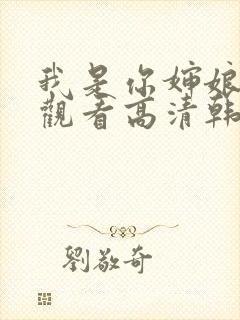 我是你婶娘
觀看高清韩
劉敬奇